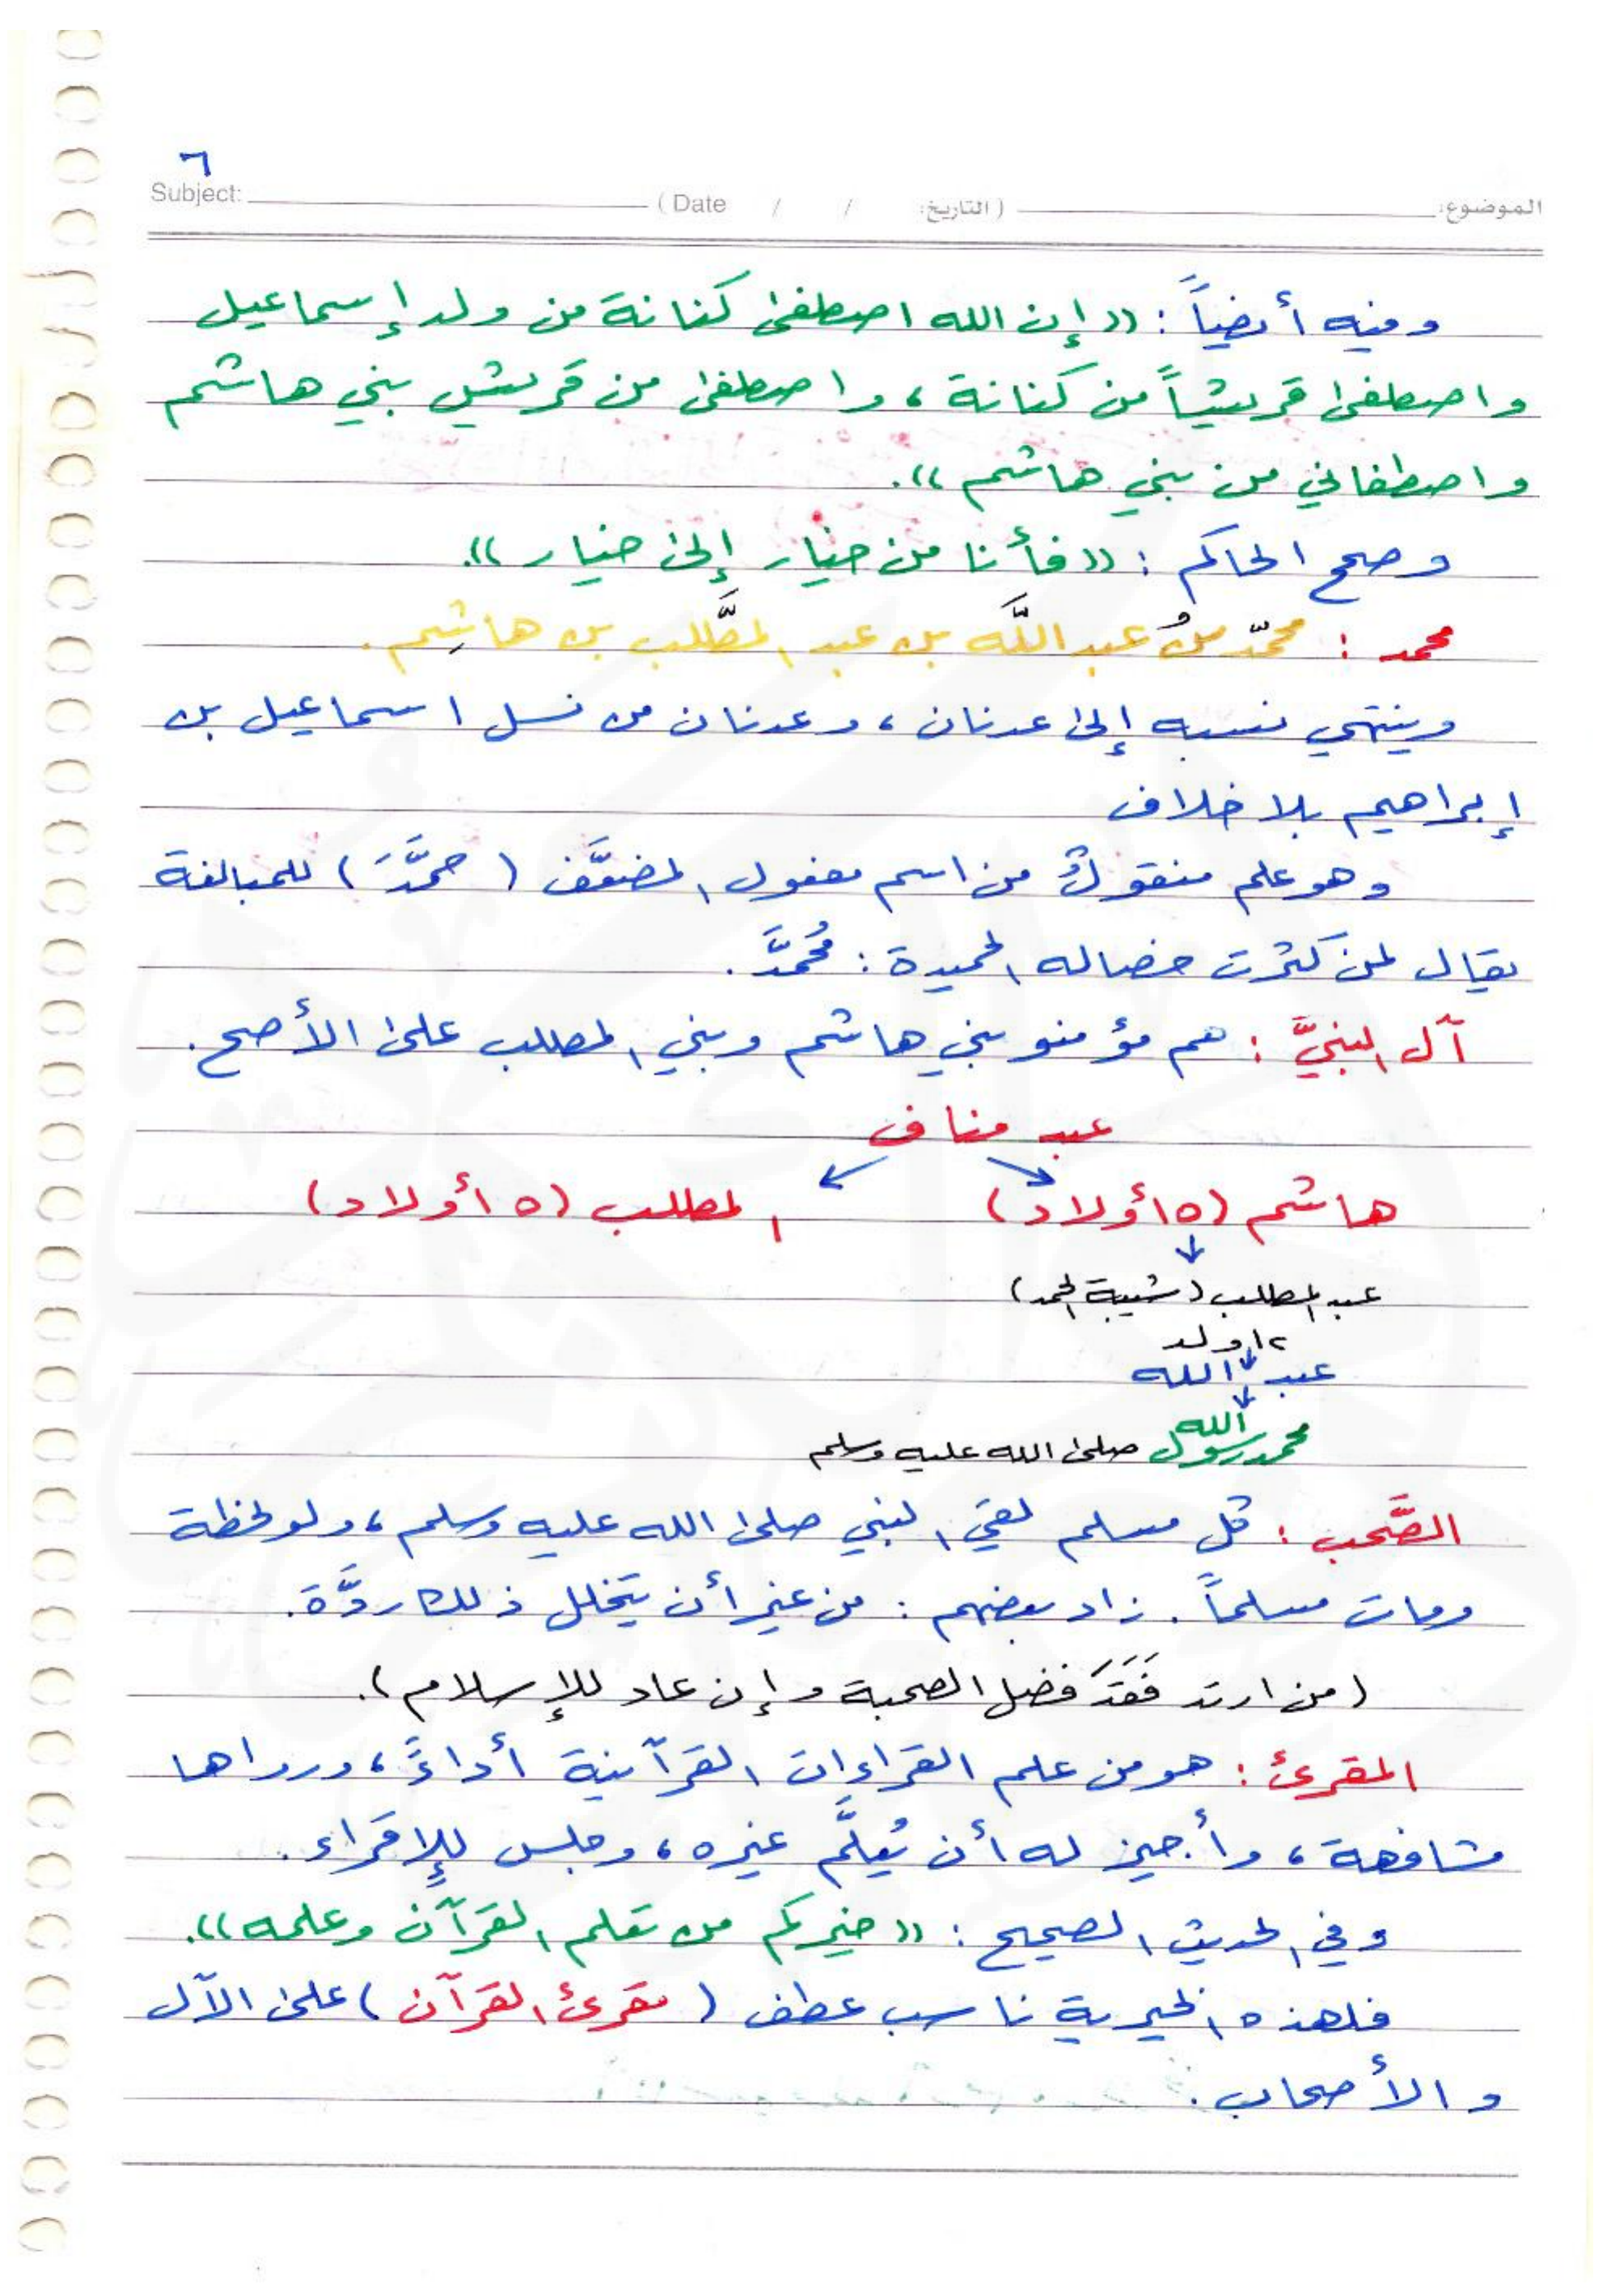 ٦
Subject: (Date / / التاريخ: ) الموضوع:
وفيه أيضاً : ((إن الله اصطفى كنانة من ولد إسماعيل
واصطفى قريشاً من كنانة ، واصطفى من قريش بني هاشم
واصطفاني من بني هاشم )).
وصحح الحاكم : ((فأنا من خيار إلى خيار )).
محمد : محمّد بنُ عبد اللَّه بن عبد المطَّلب بن هاشِم .
وينتهي نسبه إلى عدنان ، وعدنان من نسل اسماعيل بن
إبراهيم بلا خلاف
وهو علم منقولٌ من اسم مفعول المضعَّف ( حمَّدَ ) للمبالغة
يقال لمن كثرت خصاله الحميدة : مُحمَّد .
آل النبيِّ : هم مؤمنو بني هاشم وبني المطلب على الأصح .
عبد مناف
هاشم (٥ أولاد) المطلب (٥ أولاد)
عبد المطلب (شيبة الحمد)
١٢ ولد
عبد الله
محمد رسول الله صلى الله عليه وسلم
الصَّحب : كل مسلم لقي النبي صلى الله عليه وسلم ، ولو لحظة
ومات مسلماً . زاد بعضهم : من غير أن يتخلل ذلك ردَّة .
(من ارتد فَقَدَ فضل الصحبة وإن عاد للإسلام ).
المقرئ : هو من علم القراءات القرآنية أداءً ، ورواها
مشافهة ، وأجيز له أن يُعلِّم غيره ، وجلس للإقراء .
وفي الحديث الصحيح : ((خيركم من تعلم القرآن وعلمه )).
فلهذه الخيرية ناسب عطف ( مقرئ القرآن ) على الآل
والأصحاب .